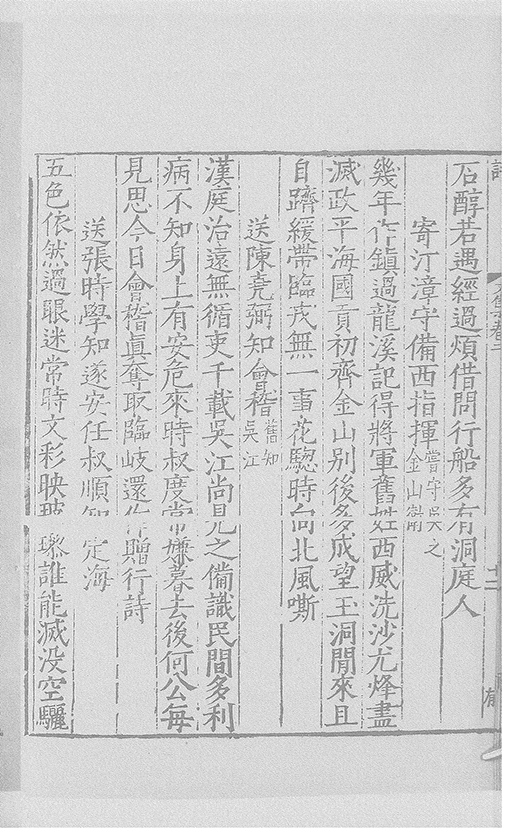 石醇若遇經過煩借問行船多有洞庭人
寄汀漳守備西指揮嘗守吳之金山衛
幾年作鎮過龍溪記得將軍舊姓西威洗沙尤烽盡
滅政平海國貢初齊金山别後多成望玉洞閒來且
自躋緩帶臨戎無一事花驄時向北風嘶
送陳堯弼知會稽舊知吳江
漢庭治遠無循吏千載吳江尚見之備識民間多利
病不知身上有安危來時叔度常嫌暮去後何公每
見思今日會稽眞奪取臨岐還作贈行詩
送張時學知遂安任叔順知定海
五色依然過眼迷常時文彩映玻瓈誰能滅没空驪